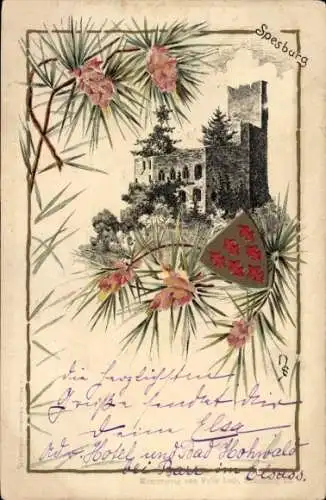 Spesburg
die herzlichsten
Grüße sendet dir
Deine Elsa
Adr. Hotel und Bad Hohwald
bei Barr im Elsass.